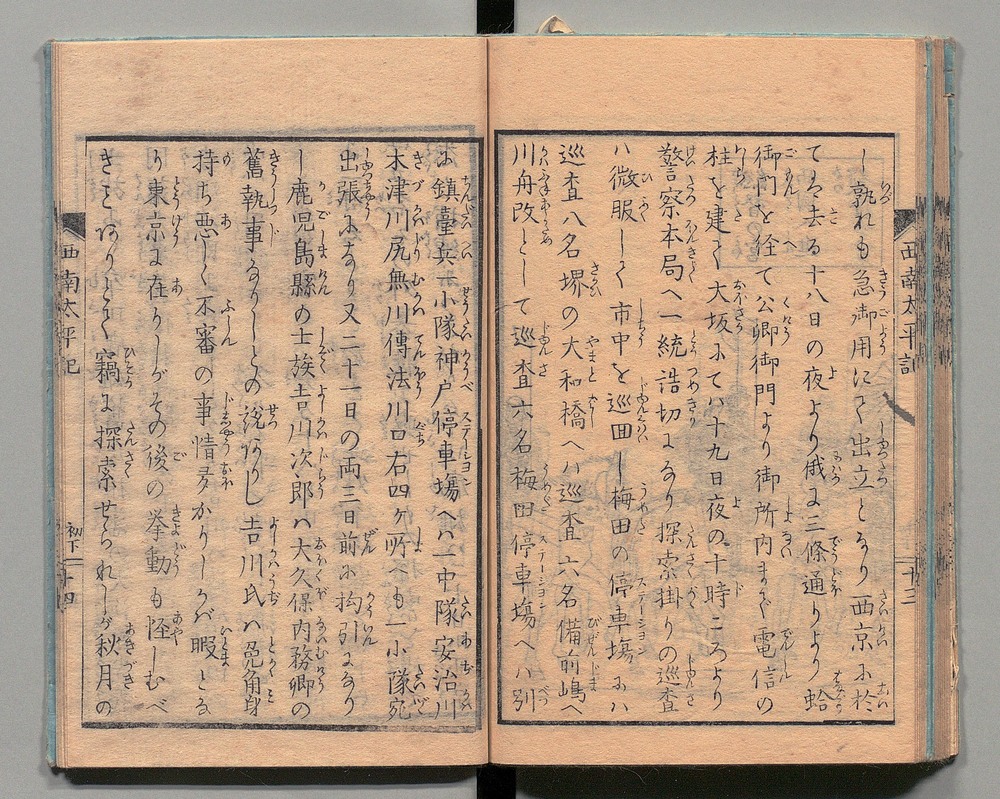 西南太平記　十三
し孰れも急御用にて出立となり西京に於
ては去る十八日の夜より俄に三條通りより蛤
御門を経て公卿御門より御所内まで電信の
柱を建て大坂にてハ十九日夜の十時ころより
警察本局へ一統浩切になり探索掛りの巡査
ハ微服して市中を巡回し梅田の停車塲にハ
巡査八名堺の大和橋へハ巡査六名備前嶋へ
川舟改として巡査六名梅田停車塲へハ別
に鎮臺兵一小隊神戸停車塲へハ一中隊安治川
木津川尻無川傳法川口右四ヶ所へも一小隊宛
出張になり又二十一日の両三日前に拘引になり
し鹿児島縣の士族吉川次郎ハ大久保内務卿の
舊執事なりしとの説ありし吉川氏ハ兎角身
持ち悪しく不審の事情多かりしかバ暇とな
り東京に在りしがその後の挙動も怪しむべ
きことありとて竊に探索せられしが秋月の
西南太平記　初下　十四